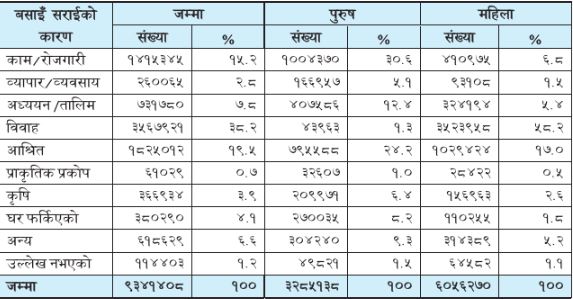 बसाइँ सराईको कारण जम्मा पुरुष महिला
संख्या % संख्या % संख्या %
काम/रोजगारी १४१५३४५ १५.२ १००४३७० ३०.६ ४१०९७५ ६.८
व्यापार/व्यवसाय २६००६५ २.८ १६६९५७ ५.१ ९३१०८ १.५
अध्ययन/तालिम ७३१७८० ७.८ ४०७५८६ १२.४ ३२४१९४ ५.४
विवाह ३५६७९२१ ३८.२ ४३९६३ १.३ ३५२३९५८ ५८.२
आश्रित १८२५०१२ १९.५ ७९५५८८ २४.२ १०२९४२४ १७.०
प्राकृतिक प्रकोप ६१०२९ ०.७ ३२६०७ १.० २८४२२ ०.५
कृषि ३६६९३४ ३.९ २०९९७१ ६.४ १५६९६३ २.६
घर फर्किएको ३८०२९० ४.१ २७००३५ ८.२ ११०२५५ १.८
अन्य ६१८६२९ ६.६ ३०४२४० ९.३ ३१४३८९ ५.२
उल्लेख नभएको ११४४०३ १.२ ४९८२१ १.५ ६४५८२ १.१
जम्मा ९३४१४०८ १०० ३२८५१३८ १०० ६०५६२७० १००